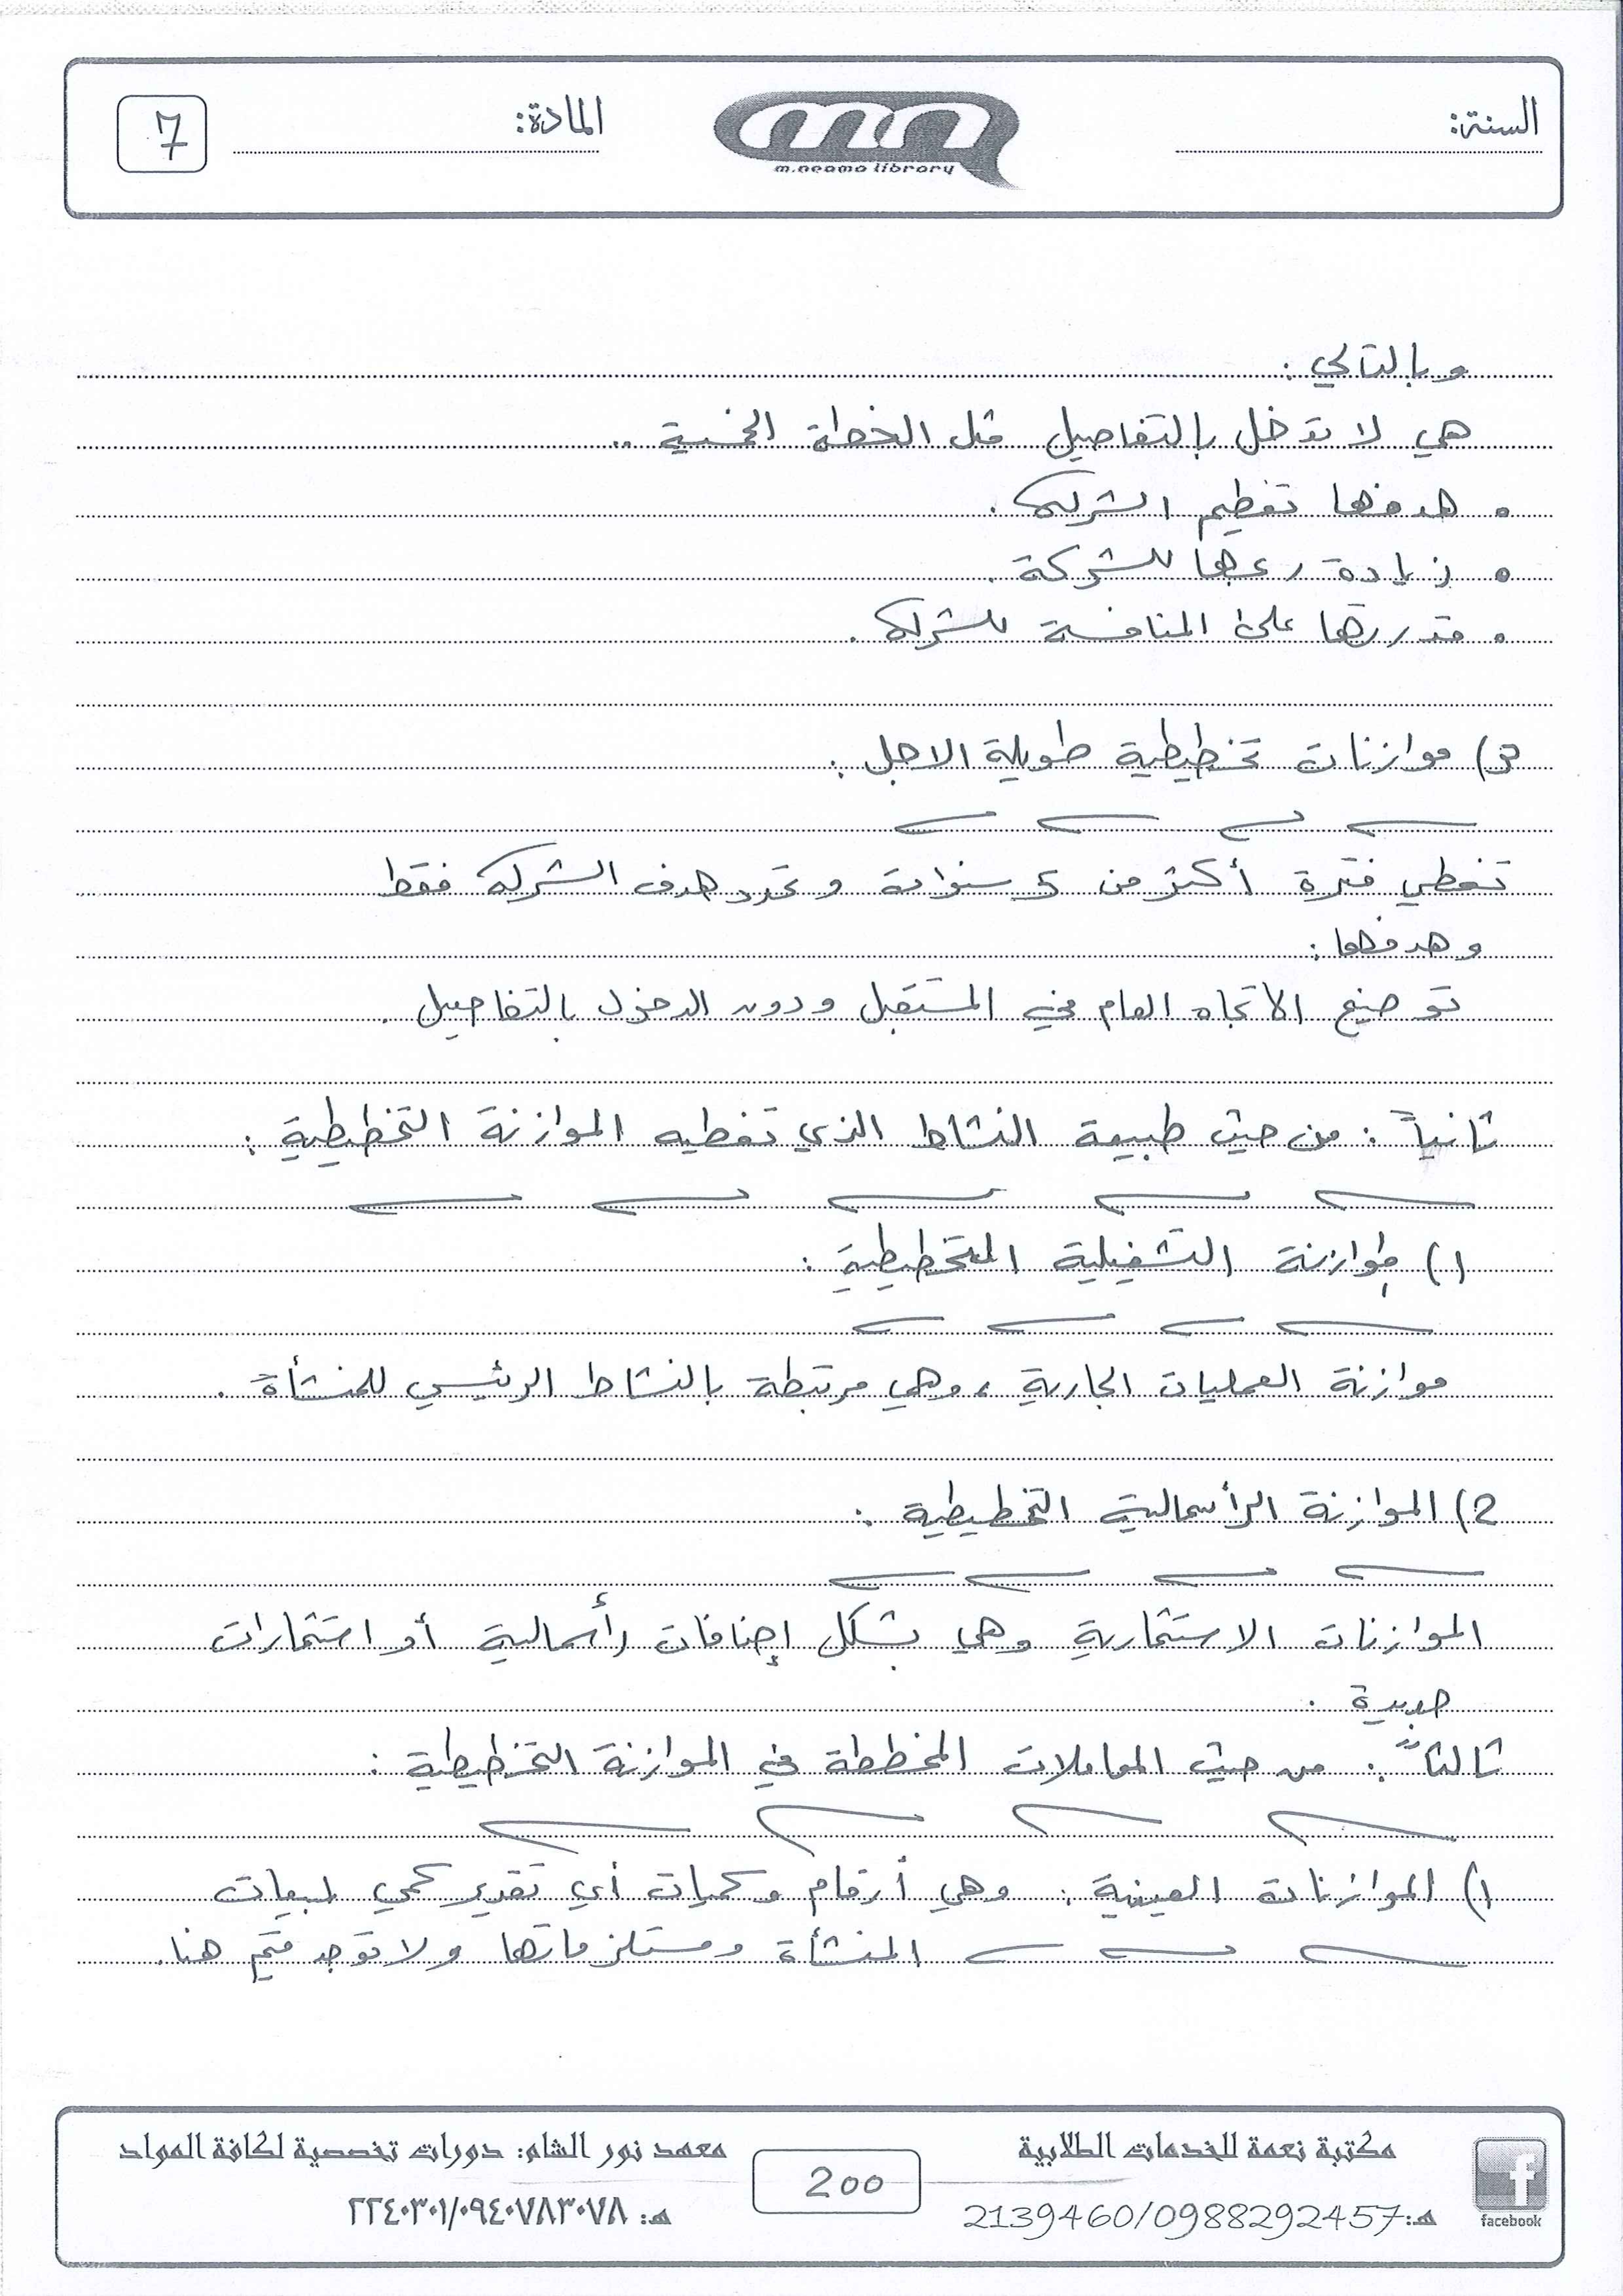 السنة:
m.neama library
المادة:
7
وبالتالي :
هي لا تدخل بالتفاصيل مثل الخطة الخمسية ..
• هدفها تعظيم الشركة .
• زيادة ربحها للشركة .
• قدرتها على المنافسة للشركة .
3) موازنات تخطيطية طويلة الاجل :
تغطي فترة أكثر من 5 سنوات و تحدد هدف الشركة فقط
و هدفها :
توضيح الاتجاه العام في المستقبل و دون الدخول بالتفاصيل .
ثانياً : من حيث طبيعة النشاط الذي تغطيه الموازنة التخطيطية :
1) موازنة التشغيلية التخطيطية :
موازنة العمليات الجارية ، وهي مرتبطة بالنشاط الرئيسي للمنشأة .
2) الموازنة الرأسمالية التخطيطية :
الموازنات الاستثمارية وهي بشكل إضافات رأسمالية أو استثمارات
جديدة .
ثالثاً : من حيث المعاملات المخططة في الموازنة التخطيطية :
1) الموازنات العينية : وهي أرقام وكميات أي تقدير كمي لمبيعات
المنشأة ومستلزماتها ولا توجد قيم هنا .
مكتبة نعمة للخدمات الطلابية
هـ: 2139460/0988292457
facebook
200
معهد نور الشام: دورات تخصصية لكافة المواد
هـ: ٢٢٤٠٣٠١/٠٩٤٠٧٨٣٠٧٨